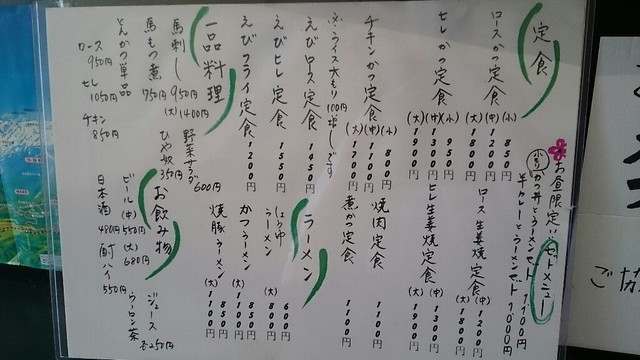 定食
ロースかつ定食
(小) 850円
(中) 1200円
(大) 1800円
ヒレかつ定食
(小) 950円
(中) 1300円
(大) 1900円
チキンかつ定食
(小) 800円
(中) 1100円
(大) 1700円
※ライス大もり100円増しです
えびロース定食 1450円
えびヒレ定食 1550円
えびフライ定食 1200円
お昼限定!!セットメニュー
かつ丼とラーメンセット 1100円
半カレーとラーメンセット 1000円
ロース生姜焼定食
(中) 1200円
(大) 1800円
ヒレ生姜焼定食
(中) 1300円
(大) 1900円
焼肉定食 1100円
煮かつ定食 1100円
ラーメン
しょうゆラーメン 600円
(大) 800円
かつラーメン 850円
(大) 1100円
焼豚ラーメン 850円
(大) 1100円
一品料理
馬刺し 950円
(大) 1400円
馬もつ煮 750円
とんかつ単品
ロース 950円
ヒレ 1050円
チキン 850円
野菜サラダ 600円
ひや奴 350円
お飲み物
ビール(中) 550円
(大) 680円
日本酒 480円
酎ハイ 350円
ジュース
ウーロン茶
各250円
ご協